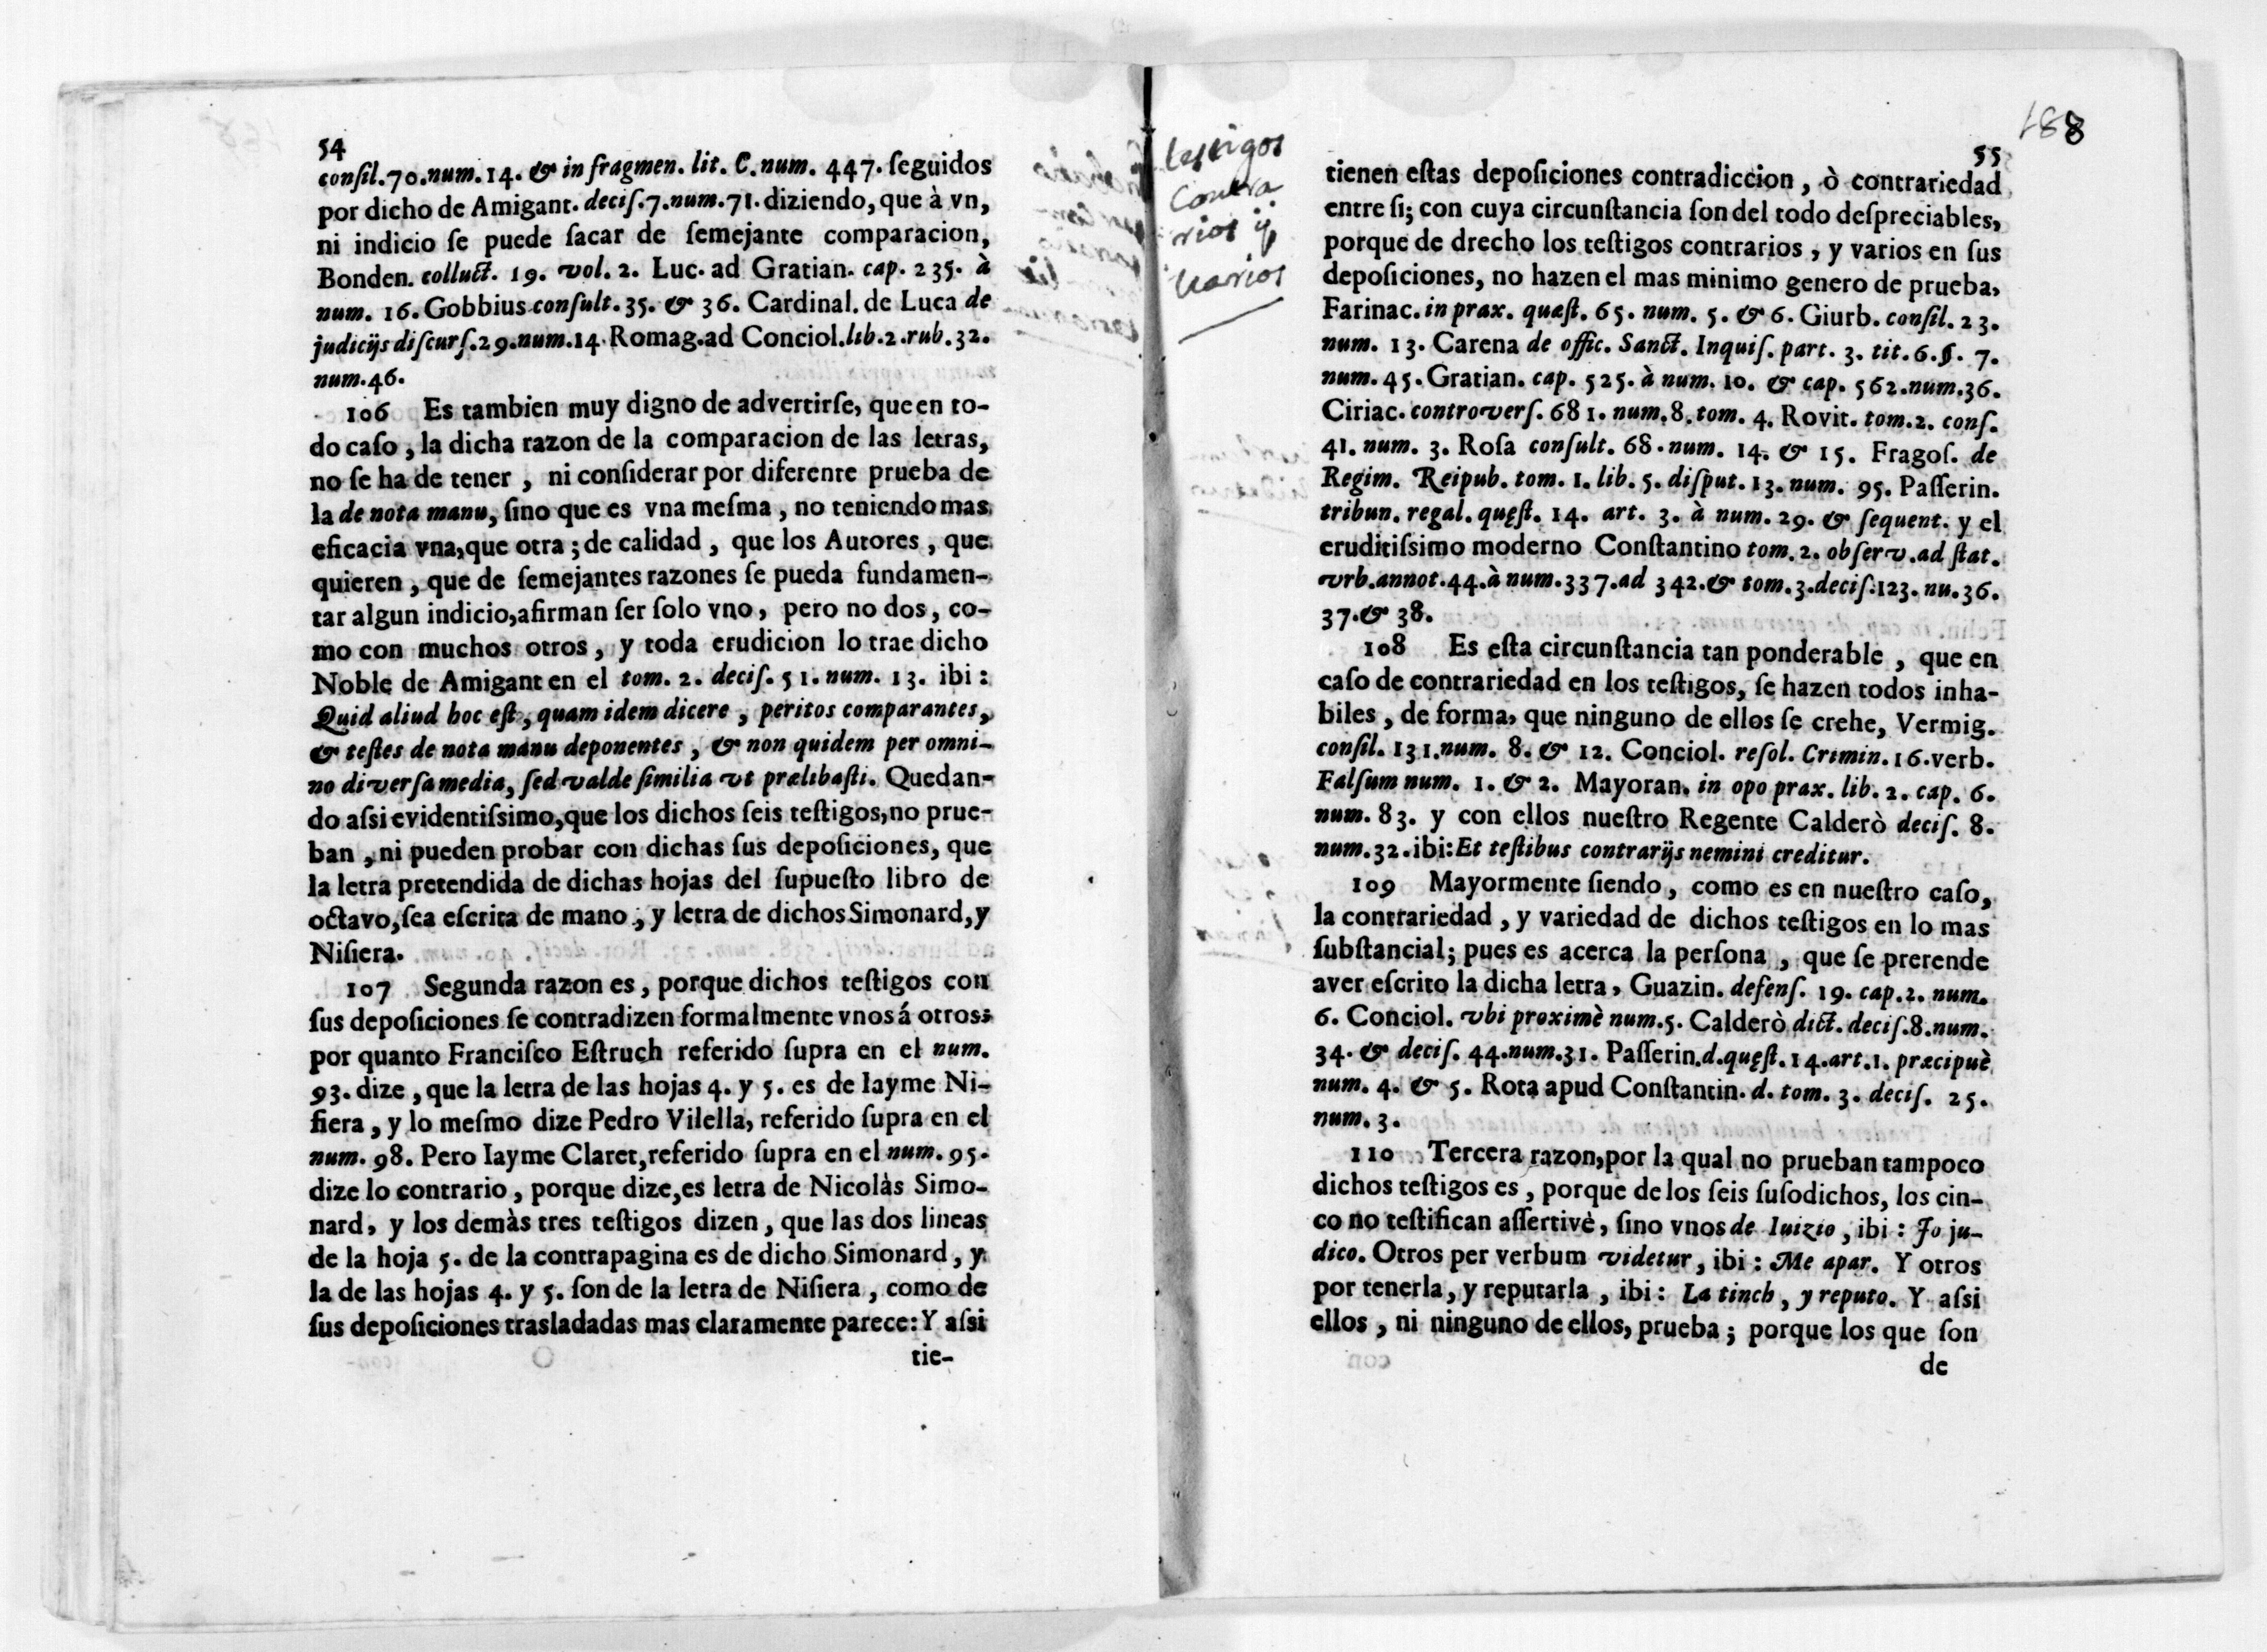 54
conſil.70.num.14. & in fragmen. lit. C. num. 447. ſeguidos
por dicho de Amigant. deciſ.7.num.71. diziendo, que à vn,
ni indicio ſe puede ſacar de ſemejante comparacion,
Bonden. colluct. 19. vol. 2. Luc. ad Gratian. cap. 235. à
num. 16. Gobbius conſult. 35. & 36. Cardinal. de Luca de
judicijs diſcurſ.29.num.14. Romag.ad Conciol.lib.2.rub.32.
num.46.
106 Es tambien muy digno de advertirſe, que en to-
do caſo, la dicha razon de la comparacion de las letras,
no ſe ha de tener, ni conſiderar por diferente prueba de
la de nota manu, ſino que es vna meſma, no teniendo mas
eficacia vna, que otra; de calidad, que los Autores, que
quieren, que de ſemejantes razones ſe pueda fundamen-
tar algun indicio, afirman ſer ſolo vno, pero no dos, co-
mo con muchos otros, y toda erudicion lo trae dicho
Noble de Amigant en el tom. 2. deciſ. 51. num. 13. ibi:
Quid aliud hoc eſt, quam idem dicere, peritos comparantes,
& teſtes de nota manu deponentes, & non quidem per omni-
no diverſa media, ſed valde ſimilia vt prælibaſti. Quedan-
do aſsi evidentiſsimo, que los dichos ſeis teſtigos, no prue-
ban, ni pueden probar con dichas ſus depoſiciones, que
la letra pretendida de dichas hojas del ſupueſto libro de
octavo, ſea eſcrita de mano, y letra de dichos Simonard, y
Niſiera.
107 Segunda razon es, porque dichos teſtigos con
ſus depoſiciones ſe contradizen formalmente vnos á otros;
por quanto Franciſco Eſtruch referido ſupra en el num.
93. dize, que la letra de las hojas 4. y 5. es de Iayme Ni-
ſiera, y lo meſmo dize Pedro Vilella, referido ſupra en el
num. 98. Pero Iayme Claret, referido ſupra en el num. 95.
dize lo contrario, porque dize, es letra de Nicolàs Simo-
nard, y los demàs tres teſtigos dizen, que las dos lineas
de la hoja 5. de la contrapagina es de dicho Simonard, y
la de las hojas 4. y 5. ſon de la letra de Niſiera, como de
ſus depoſiciones trasladadas mas claramente parece: Y aſsi
tie-
188
55
testigos
contra
rios ÿ
varios
tienen eſtas depoſiciones contradiccion, ò contrariedad
entre ſi; con cuya circunſtancia ſon del todo deſpreciables,
porque de drecho los teſtigos contrarios, y varios en ſus
depoſiciones, no hazen el mas minimo genero de prueba,
Farinac. in prax. quæſt. 65. num. 5. & 6. Giurb. conſil. 23.
num. 13. Carena de offic. Sanct. Inquiſ. part. 3. tit. 6. §. 7.
num. 45. Gratian. cap. 525. à num. 10. & cap. 562.num.36.
Ciriac. controverſ. 681. num. 8. tom. 4. Rovit. tom. 2. conſ.
41. num. 3. Roſa conſult. 68. num. 14. & 15. Fragoſ. de
Regim. Reipub. tom. 1. lib. 5. diſput. 13. num. 95. Paſſerin.
tribun. regal. quęſt. 14. art. 3. à num. 29. & ſequent. y el
eruditiſsimo moderno Conſtantino tom. 2. obſerv. ad ſtat.
vrb. annot. 44. à num. 337. ad 342. & tom. 3. deciſ. 123. nu. 36.
37. & 38.
108 Es eſta circunſtancia tan ponderable, que en
caſo de contrariedad en los teſtigos, ſe hazen todos inha-
biles, de forma, que ninguno de ellos ſe crehe, Vermig.
conſil. 131. num. 8. & 12. Conciol. reſol. Crimin. 16. verb.
Falſum num. 1. & 2. Mayoran. in opo prax. lib. 2. cap. 6.
num. 83. y con ellos nueſtro Regente Calderò deciſ. 8.
num. 32. ibi: Et teſtibus contrarijs nemini creditur.
109 Mayormente ſiendo, como es en nueſtro caſo,
la contrariedad, y variedad de dichos teſtigos en lo mas
ſubſtancial; pues es acerca la perſona, que ſe pretende
aver eſcrito la dicha letra, Guazin. defenſ. 19. cap. 2. num.
6. Conciol. vbi proximè num. 5. Calderò dict. deciſ. 8. num.
34. & deciſ. 44. num. 31. Paſſerin. d. quęſt. 14. art. 1. præcipuè
num. 4. & 5. Rota apud Conſtantin. d. tom. 3. deciſ. 25.
num. 3.
110 Tercera razon, por la qual no prueban tampoco
dichos teſtigos es, porque de los ſeis ſuſodichos, los cin-
co no teſtifican aſſertivè, ſino vnos de Iuizio, ibi: Jo ju-
dico. Otros per verbum videtur, ibi: Me apar. Y otros
por tenerla, y reputarla, ibi: La tinch, y reputo. Y aſsi
ellos, ni ninguno de ellos, prueba; porque los que ſon
de